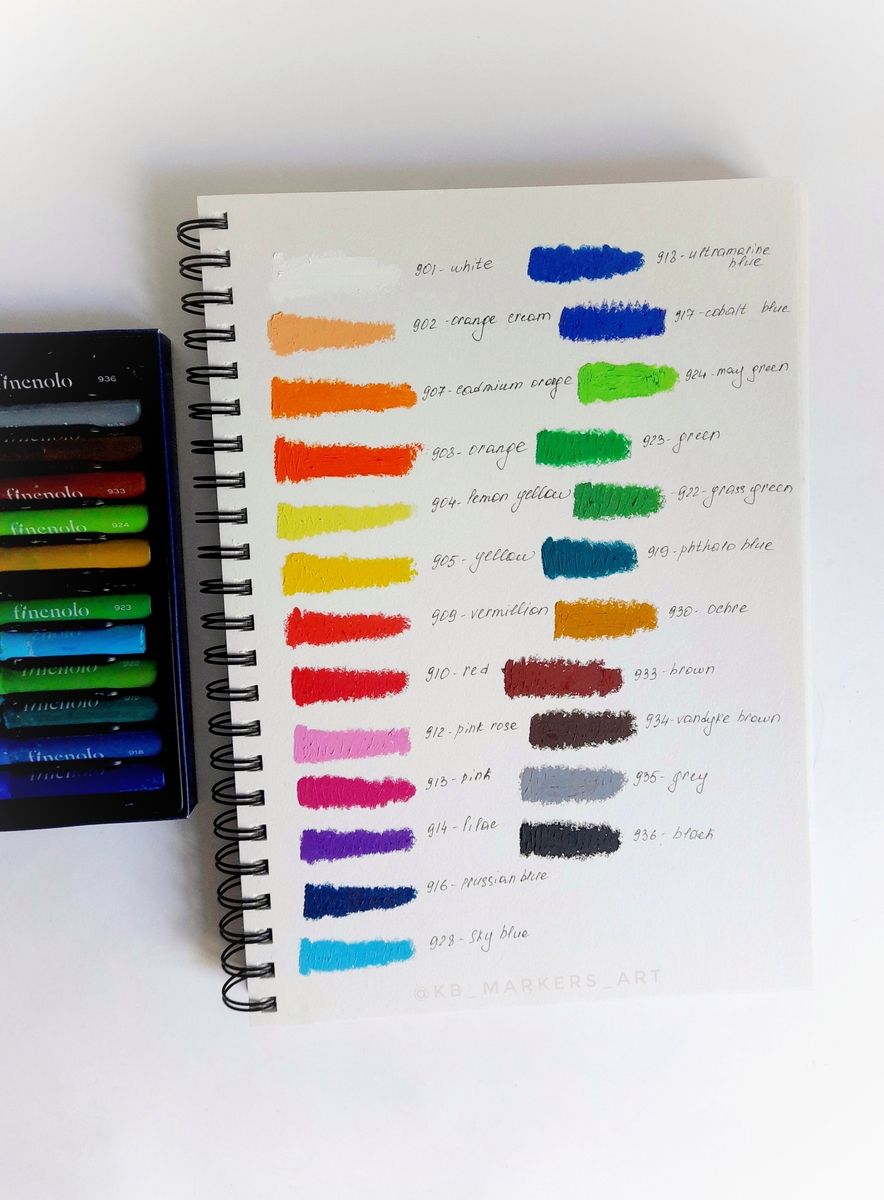 901- white
902 - orange cream
907- cadmium orage
908- orange
904- lemon yellow
905 - yellow
909 - vermillion
910 - red
912 - pink rose
913 - pink
914 - lilac
916 - prussian blue
928 - sky blue
918 - ultramarine
blue
917- cobalt blue
924 - may green
923 - green
922 - grass green
919 - phthalo blue
930 - ochre
933 - brown
934 - vandyke brown
935 - grey
936 - black
finenolo 936
finenolo 933
finenolo 924
finenolo 923
finenolo 918
@KB_MARKERS_ART